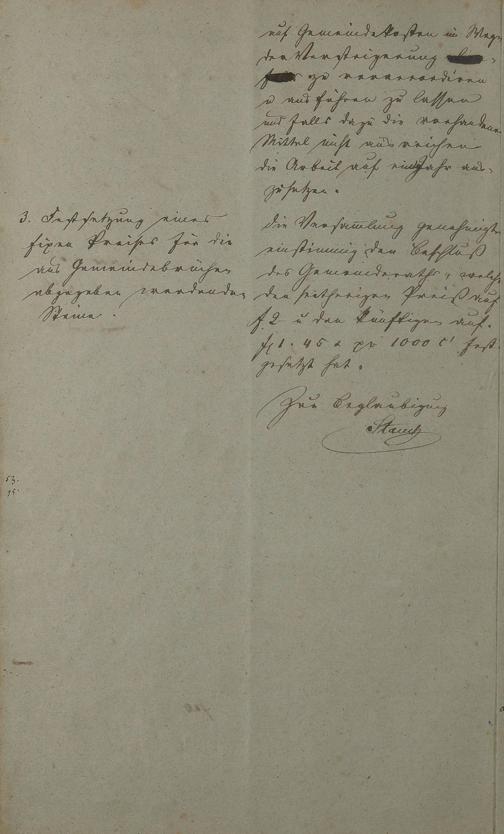 auf Gemeindekosten im Wege
der Versteigerung
zu veraccordiren
u ausführen zu lassen
und falls dazu die vorhandenen
Mittel nicht ausreichen
die Arbeit auf ein Jahr aus-
zusetzen.
3. Festsetzung eines
fixen Preises für die
aus Gemeindebrüchen
abgegeben werdenden
Steine.
die Versammlung genehmigte
einstimmig den Beschluß
des Gemeinderaths, welcher
den seitherigen Preiß auf
f. 2 u den künftigen auf
f 1. 45 x pr 1000 c' fest-
gesetzt hat.
Zur Beglaubigung